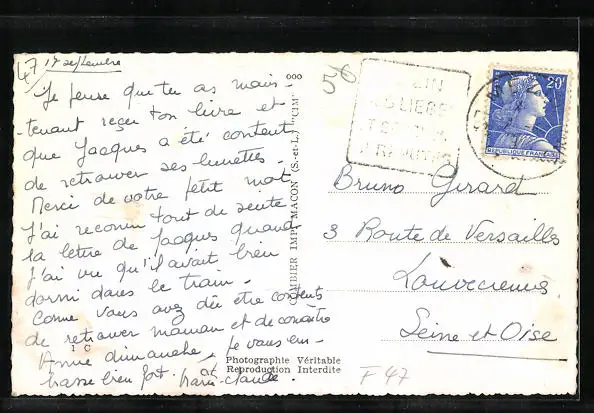 47
17 septembre
Je pense que tu as main-
tenant reçu ton livre et
que Jacques a été content
de retrouver ses lunettes.
Merci de votre petit mot
J'ai reconnu tout de suite
la lettre de Jacques quand
J'ai vu qu'il avait bien
dormi dans le train.
Comme vous avez dû être contents
de retrouver maman et de connaître
Anne dimanche, je vous em-
brasse bien fort.
1 C
COMBIER IMP. MACON (S.-et-L.) "CIM"
Photographie Véritable
Reproduction Interdite
20F
REPUBLIQUE FRANÇAISE
Bruno Girard
3 Route de Versailles
Louveciennes
Seine et Oise
F 47